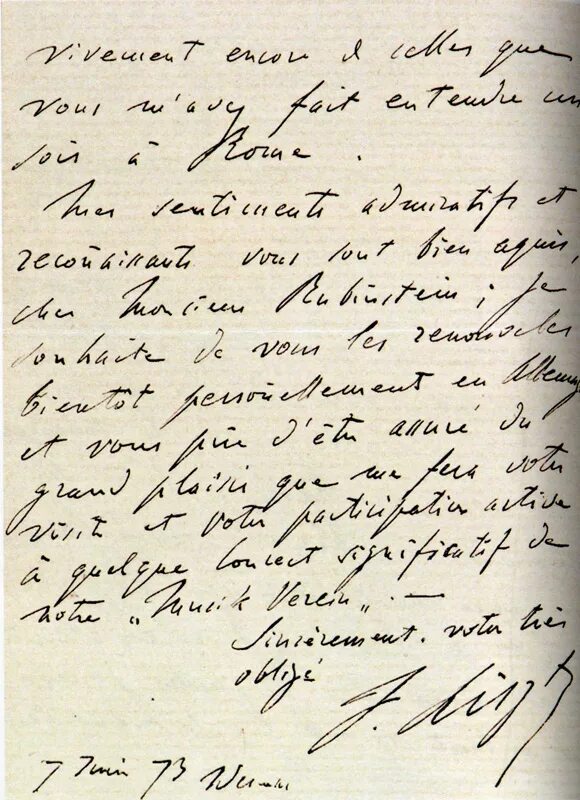 vivement encore de celles que
vous m'avez fait entendre un
soir à Rome.
Mes sentiments admiratifs et
recoñaissants vous sont bien aquis,
cher Monsieur Rubinstein; je
souhaite de vous les renouveler
bientôt persoñellement en Allemag
et vous prie d'être assuré du
grand plaisir que me fera votre
visite et votre participation active
à quelque Concert significatif de
notre „Musik Verein„. —
Sincèrement. votre très
obligé
F. Liszt
7 Juin 73 Weimar